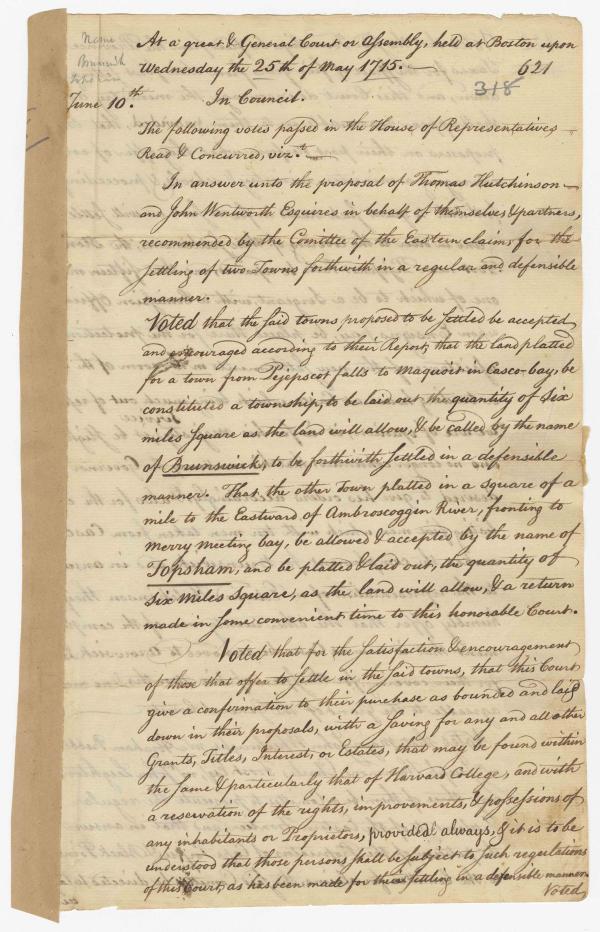 Name
Brunswick
Topsham
At a great & General Court or Assembly, held at Boston upon
Wednesday the 25th of May 1715. —
621
318
June 10th.
In Council.
The following votes passed in the House of Representatives
Read & Concurred, vizt. —
In answer unto the proposal of Thomas Hutchinson
and John Wentworth Esquires in behalf of themselves & partners,
recommended by the Comittee of the Eastern claims, for the
settling of two Towns forthwith in a regular and defensible
manner.
Voted that the said towns proposed to be settled be accepted
and encouraged according to their Report, that the land platted
for a town from Pejepscot falls to Maquoit in Casco-bay, be
constituted a township, to be laid out the quantity of six
miles square as the land will allow, & be called by the name
of Brunswick, to be forthwith settled in a defensible
manner. That the other town platted in a square of a
mile to the Eastward of Ambroscoggin River, fronting to
merry meeting bay, be allowed & accepted by the name of
Topsham, and be platted & laid out, the quantity of
six miles square, as the land will allow, & a return
made in some convenient time to this honorable Court.
Voted that for the satisfaction & encouragement
of those that offer to settle in the said towns, that this Court
give a confirmation to their purchase as bounded and laid
down in their proposals, with a saving for any and all other
Grants, Titles, Interest, or Estates, that may be found within
the same & particularly that of Harvard College, and with
a reservation of the rights, improvements, & possessions of
any inhabitants or Proprietors, provided always, & it is to be
understood that those persons shall be subject to such regulations
of this Court, as has been made for their settling in a defensible manner.
Voted